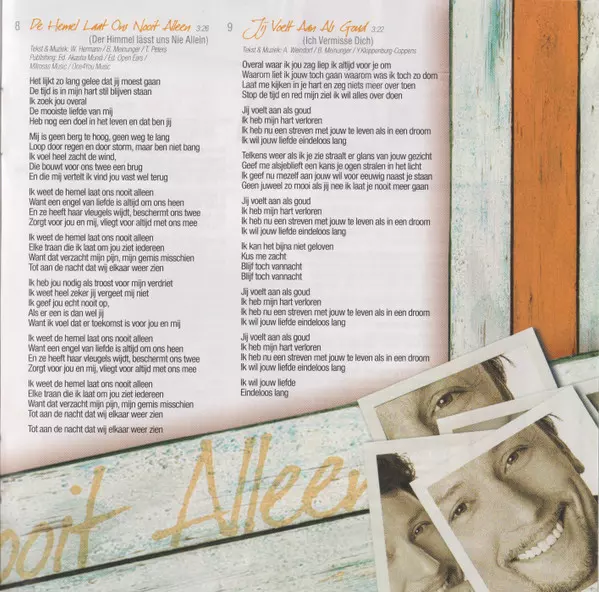 8 De Hemel Laat Ons Nooit Alleen 3:26
(Der Himmel lässt uns Nie Allein)
Tekst & Muziek: W. Hermann / B. Meinunger / T. Peters
Publishing: Ed. Akasha Mundi / Ed. Open Ears /
Mikrosax Music / One4You Music
Het lijkt zo lang gelee dat jij moest gaan
De tijd is in mijn hart stil blijven staan
Ik zoek jou overal
De mooiste liefde van mij
Heb nog een doel in het leven en dat ben jij
Mij is geen berg te hoog, geen weg te lang
Loop door regen en door storm, maar ben niet bang
Ik voel heel zacht de wind,
Die bouwt voor ons twee een brug
En die mij vertelt ik vind jou vast wel terug
Ik weet de hemel laat ons nooit alleen
Want een engel van liefde is altijd om ons heen
En ze heeft haar vleugels wijdt, beschermt ons twee
Zorgt voor jou en mij, vliegt voor altijd met ons mee
Ik weet de hemel laat ons nooit alleen
Elke traan die ik laat om jou ziet iedereen
Want dat verzacht mijn pijn, mijn gemis misschien
Tot aan de nacht dat wij elkaar weer zien
Ik heb jou nodig als troost voor mijn verdriet
Ik weet heel zeker jij vergeet mij niet
Ik geef jou echt nooit op,
Als er een is dan wel jij
Want ik voel dat er toekomst is voor jou en mij
Ik weet de hemel laat ons nooit alleen
Want een engel van liefde is altijd om ons heen
En ze heeft haar vleugels wijdt, beschermt ons twee
Zorgt voor jou en mij, vliegt voor altijd met ons mee
Ik weet de hemel laat ons nooit alleen
Elke traan die ik laat om jou ziet iedereen
Want dat verzacht mijn pijn, mijn gemis misschien
Tot aan de nacht dat wij elkaar weer zien
Tot aan de nacht dat wij elkaar weer zien
9 Jij Voelt Aan Als Goud 3:22
(Ich Vermisse Dich)
Tekst & Muziek: A. Weindorf / B. Meinunger / Y.Kloppenburg-Coppens
Overal waar ik jou zag liep ik altijd voor je om
Waarom liet ik jouw toch gaan waarom was ik toch zo dom
Laat me kijken in je hart en zeg niets meer over toen
Stop de tijd en red mijn ziel ik wil alles over doen
Jij voelt aan als goud
Ik heb mijn hart verloren
Ik heb nu een streven met jouw te leven als in een droom
Ik wil jouw liefde eindeloos lang
Telkens weer als ik je zie straalt er glans van jouw gezicht
Geef me alsjeblieft een kans je ogen stralen in het licht
Ik geef nu mezelf aan jouw wil voor eeuwig naast je staan
Geen juweel zo mooi als jij nee ik laat je nooit meer gaan
Jij voelt aan als goud
Ik heb mijn hart verloren
Ik heb nu een streven met jouw te leven als in een droom
Ik wil jouw liefde eindeloos lang
Ik kan het bijna niet geloven
Kus me zacht
Blijf toch vannacht
Blijf toch vannacht
Jij voelt aan als goud
Ik heb mijn hart verloren
Ik heb nu een streven met jouw te leven als in een droom
Ik wil jouw liefde eindeloos lang
Jij voelt aan als goud
Ik heb mijn hart verloren
Ik heb nu een streven met jouw te leven als in een droom
Ik wil jouw liefde eindeloos lang
Ik wil jouw liefde
Eindeloos lang
ooit Alleen